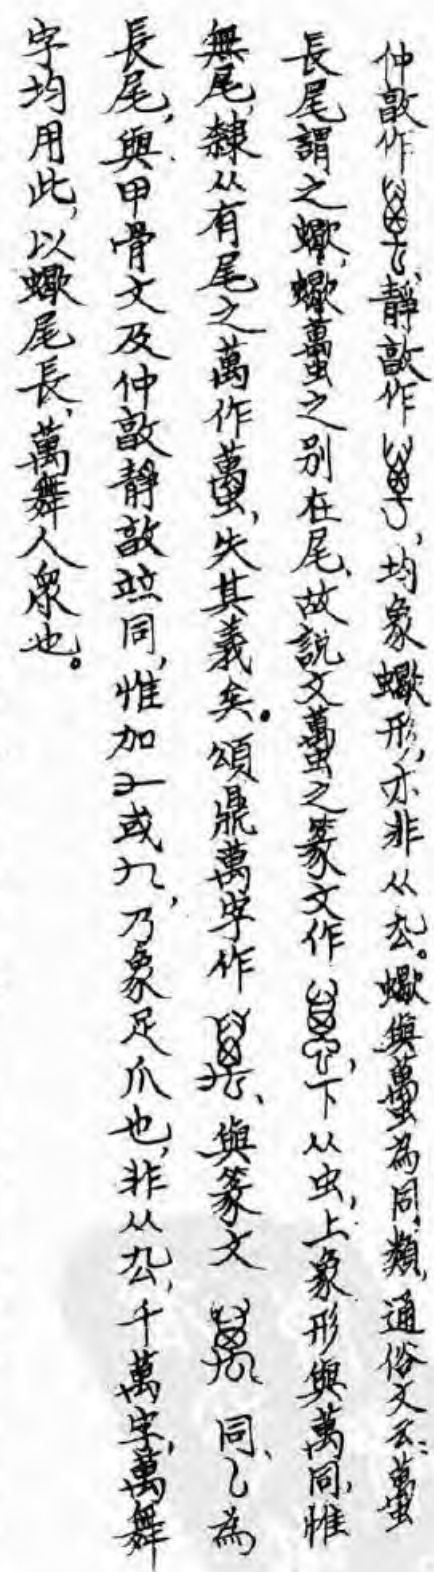 仲敦作、靜敦作，均象蠍形，亦非从厹。蠍與蠆為同類，通俗文云：蠆
長尾謂之蠍，蠍蠆之别在尾，故説文蠆之篆文作，下从虫，上象形與萬同，惟
無尾，隸从有尾之萬作蠆，失其義矣。頌鼎萬字作、與篆文同、乀為
長尾，與甲骨文及仲敦靜敦竝同，惟加或，乃象足爪也，非从厹，千萬字，萬舞
字均用此，以蠍尾長，萬舞人衆也。